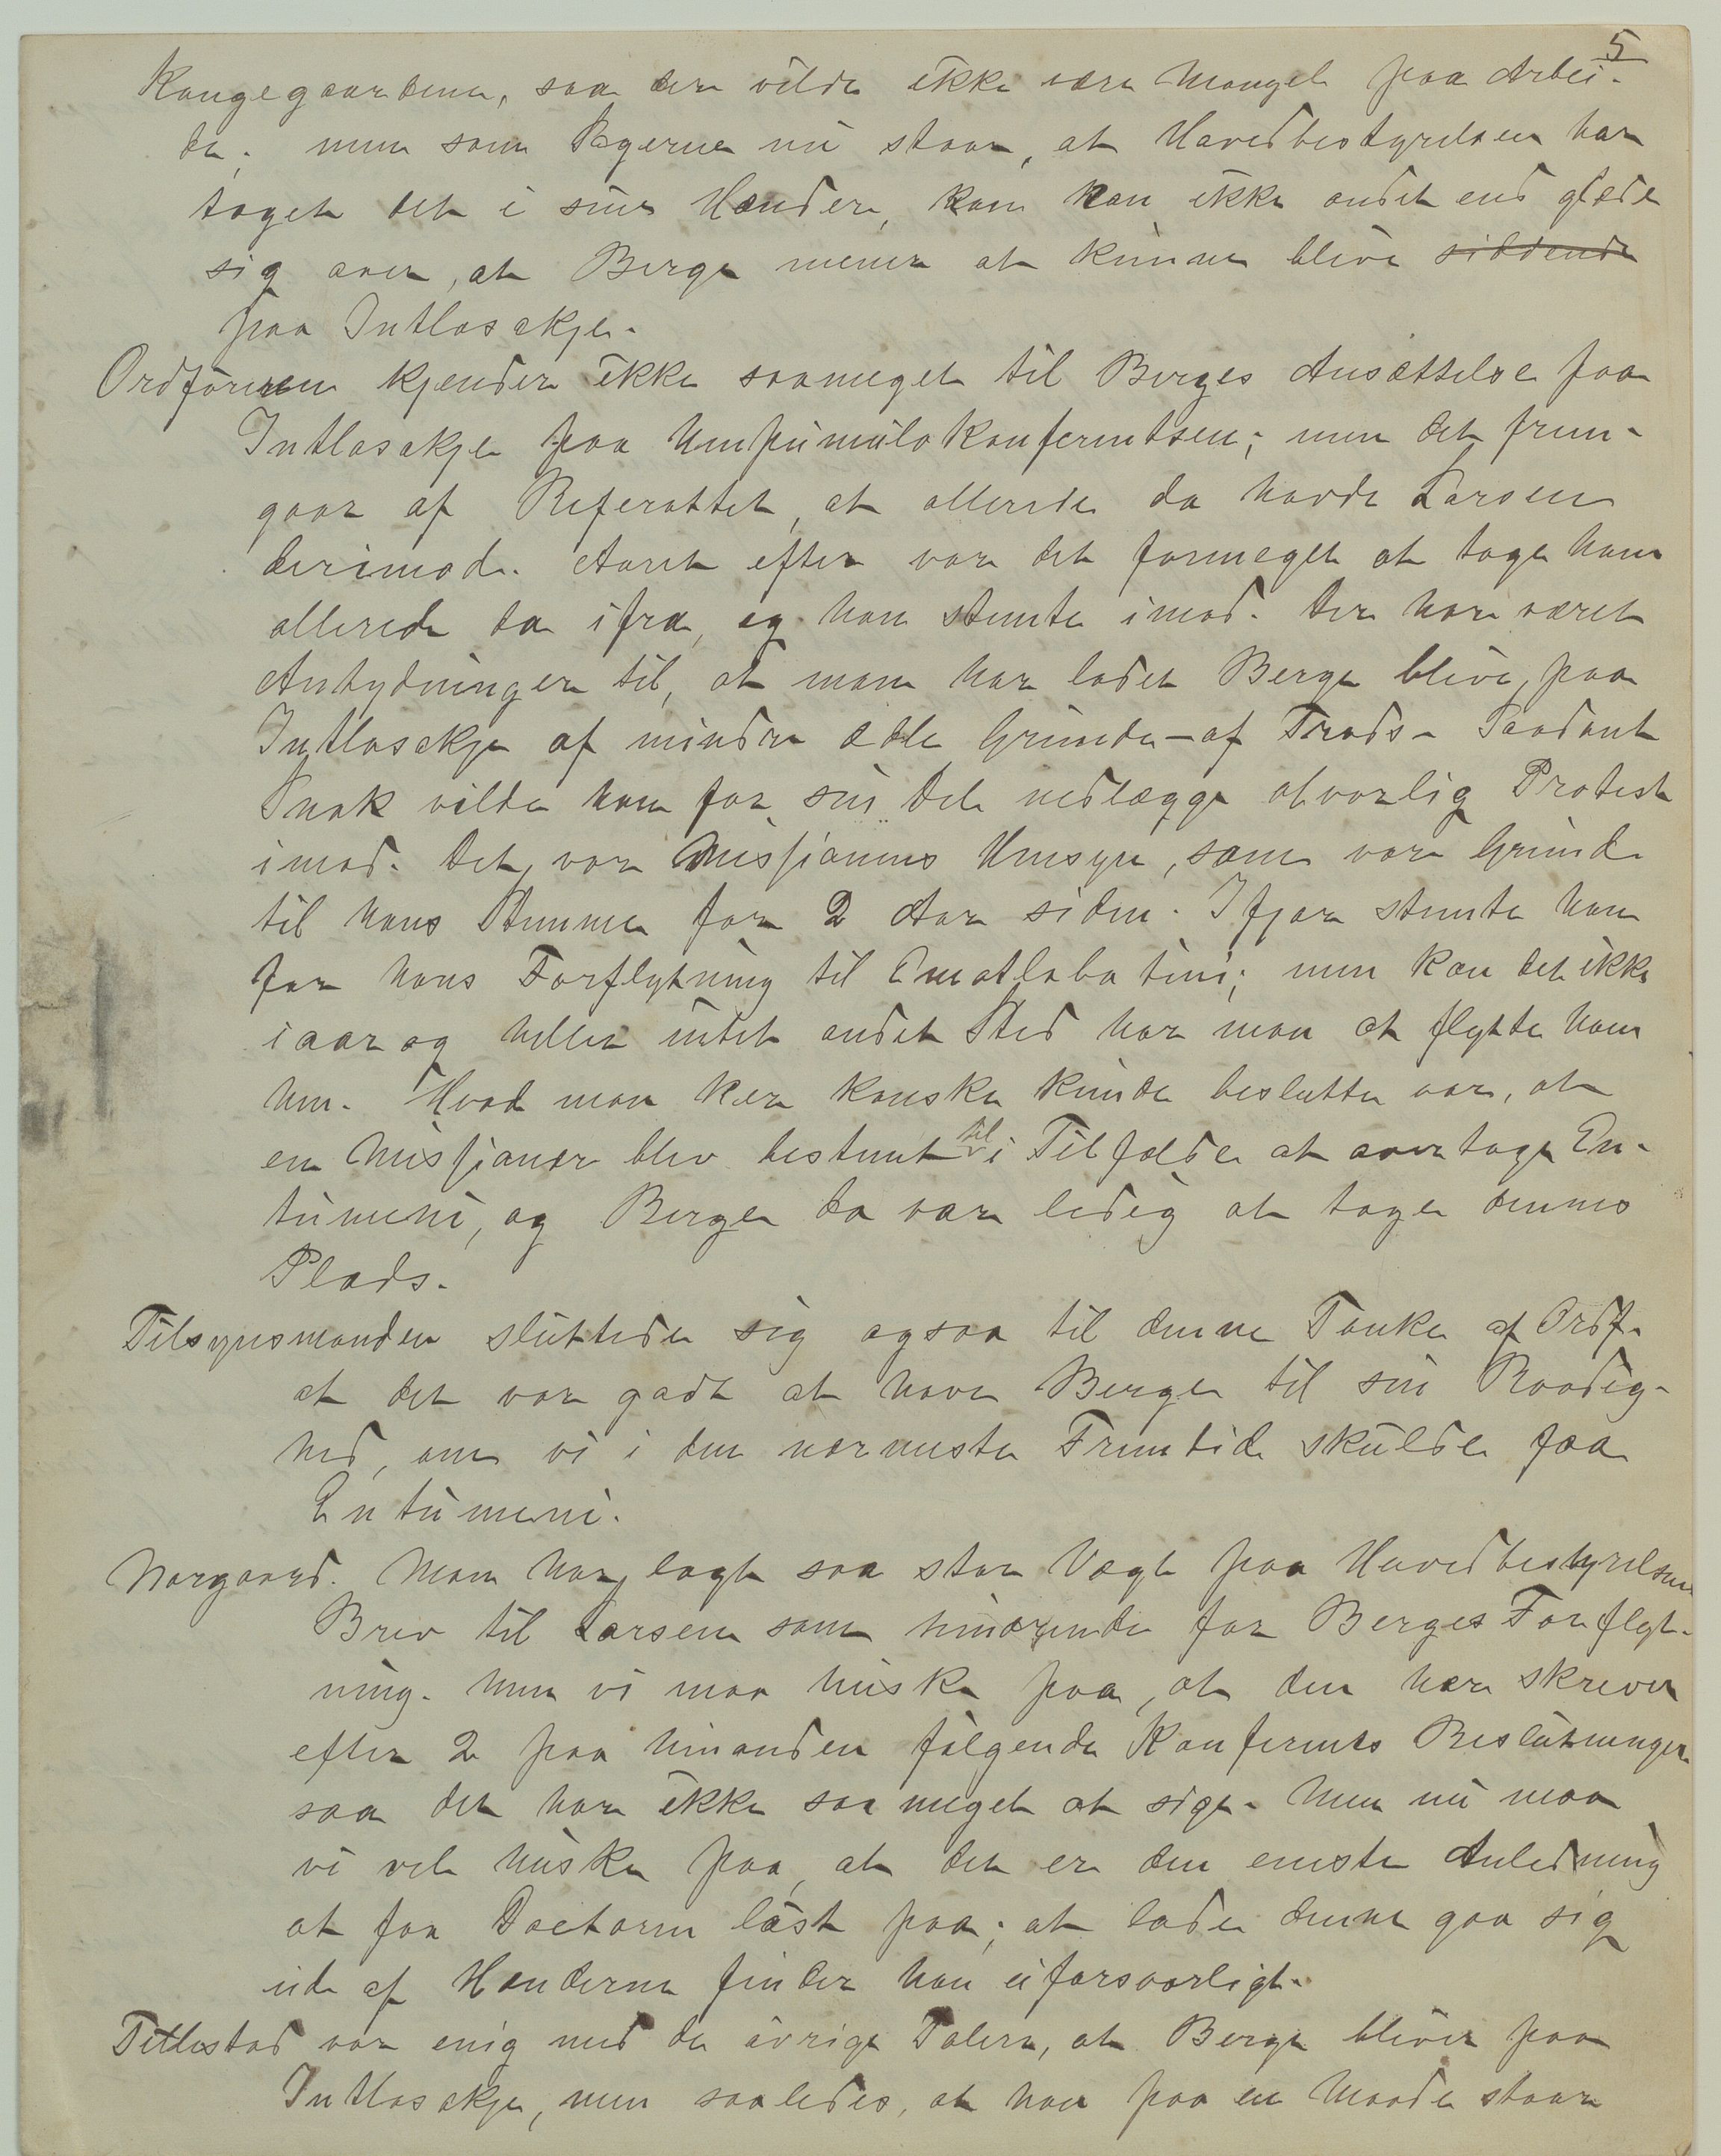 5
Kongegaardene, saa der vilde ikke være Mangel paa Arbei-
de. men som Sagerne nu staar, at Hovedbestyrelsen har
taget det i sine Hænder, kan han ikke andet end glæde
sig over, at Berge mener at kunne blive siddende
paa Intlasakje.
Ordføreren kjender ikke saameget til Berges Ansættelse paa
Intlasakje paa Umpumulokonferentsen; men det frem-
gaar af Referattet, at allerede da havde Larsen
derimod. Aaret efter var det formeget at tage ham
allerede da ifra, og han stemte imod. Der har været
Antydninger til, at man har ladet Berge blive paa
Intlasakje af mindre ædle Grunde – af Trods. Saadant
Snak vilde han for sin Del nedlægge alvorlig Protest
imod. Det var Missionens Umsyn, som var Grund
til hans Stemme for 2 Aar siden. Ifjor stemte han
for hans Forflytning til Ematlabatini; men kan det ikke
iaar og heller intet andet Sted har man at flytte ham
hen. Hvad man her kanske kunde beslutte var, at
en Missionær blev bestemt til i Tilfælde at overtage En-
tumeni, og Berge da var ledig at tage dennes
Plads.
Tilsynsmanden sluttede sig ogsaa til denne Tanke af Ordf.
at det var godt at have Berge til sin Raadig-
hed, om vi i den nærmeste Fremtid skulde faa
Entumeni.
Norgaard. Man har lagt saa stor Vægt paa Hovedbestyrelsens
Brev til Larsen som hindrende for Berges Forflyt-
ning. Men vi maa huske paa, at den har skrevet
efter 2 paa hinanden følgende Konferents Beslutninger
saa det har ikke saa meget at sige. Men nu maa
vi vel huske paa, at det er den eneste Anledning
at faa Doctoren løst paa; at lade denne gaa sig
ud af Hænderne finder han uforsvarligt.
Titlestad var enig med de øvrige Talere, at Berge bliver paa
Intlasakje, men saaledes, at han paa en Maade staar